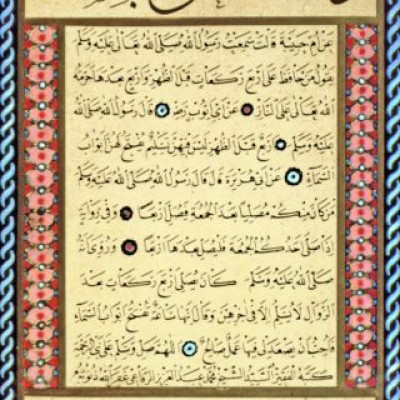 عن أم حبيبة قالت سمعت رسول الله صلى الله تعالى عليه وسلم
يقول من حافظ على أربع ركعات قبل الظهر وأربع بعدها حرمه
الله تعالى على النار عن أبي أيوب رضـ قال رسول الله صلى الله
عليه وسلم أربع قبل الظهر ليس فيهن تسليم تفتح لهن أبواب
السماء عن أبي هريرة قال قال رسول الله صلى الله عليه وسلم
من كان منكم مصليا بعد الجمعة فصل أربعا وفي رواية
إذا صلى أحدكم الجمعة فليصل بعدها أربعا وروي أنه
صلى الله عليه وسلم كان يصلي أربع ركعات بعد
الزوال لا يسلم إلا في آخرهن وقال إنها ساعة تفتح أبواب السماء
فأحب أن يصعد لي فيها عمل صالح اللهم صل وسلم على نبي الرحمة
كتبه الفقير السيد الشيخ محمد عبد العزيز الرفاعي غفر الله ذنوبهم